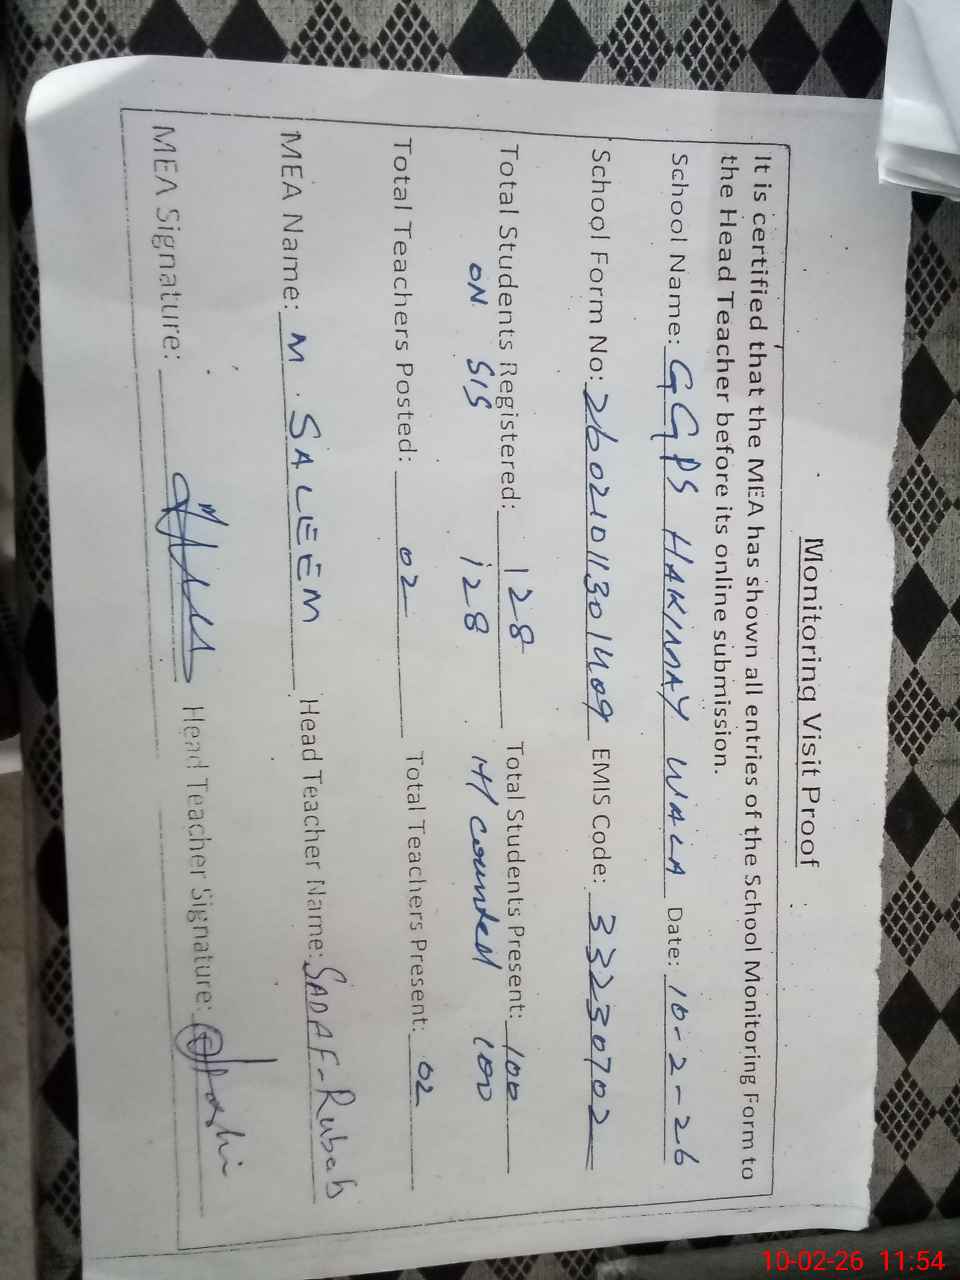 Monitoring Visit Proof
It is certified that the MEA has shown all entries of the School Monitoring Form to
the Head Teacher before its online submission.
School Name: GGPS HAKIMAY WALA Date: 10-2-26
School Form No: 26021011301409 EMIS Code: 33230702
Total Students Registered: 128 Total Students Present: 100
ON SIS 128 H/counted 100
Total Teachers Posted: 02 Total Teachers Present: 02
MEA Name: M. SALEEM Head Teacher Name: SADAF-Rubab
MEA Signature: Head Teacher Signature:
10-02-26 11:54